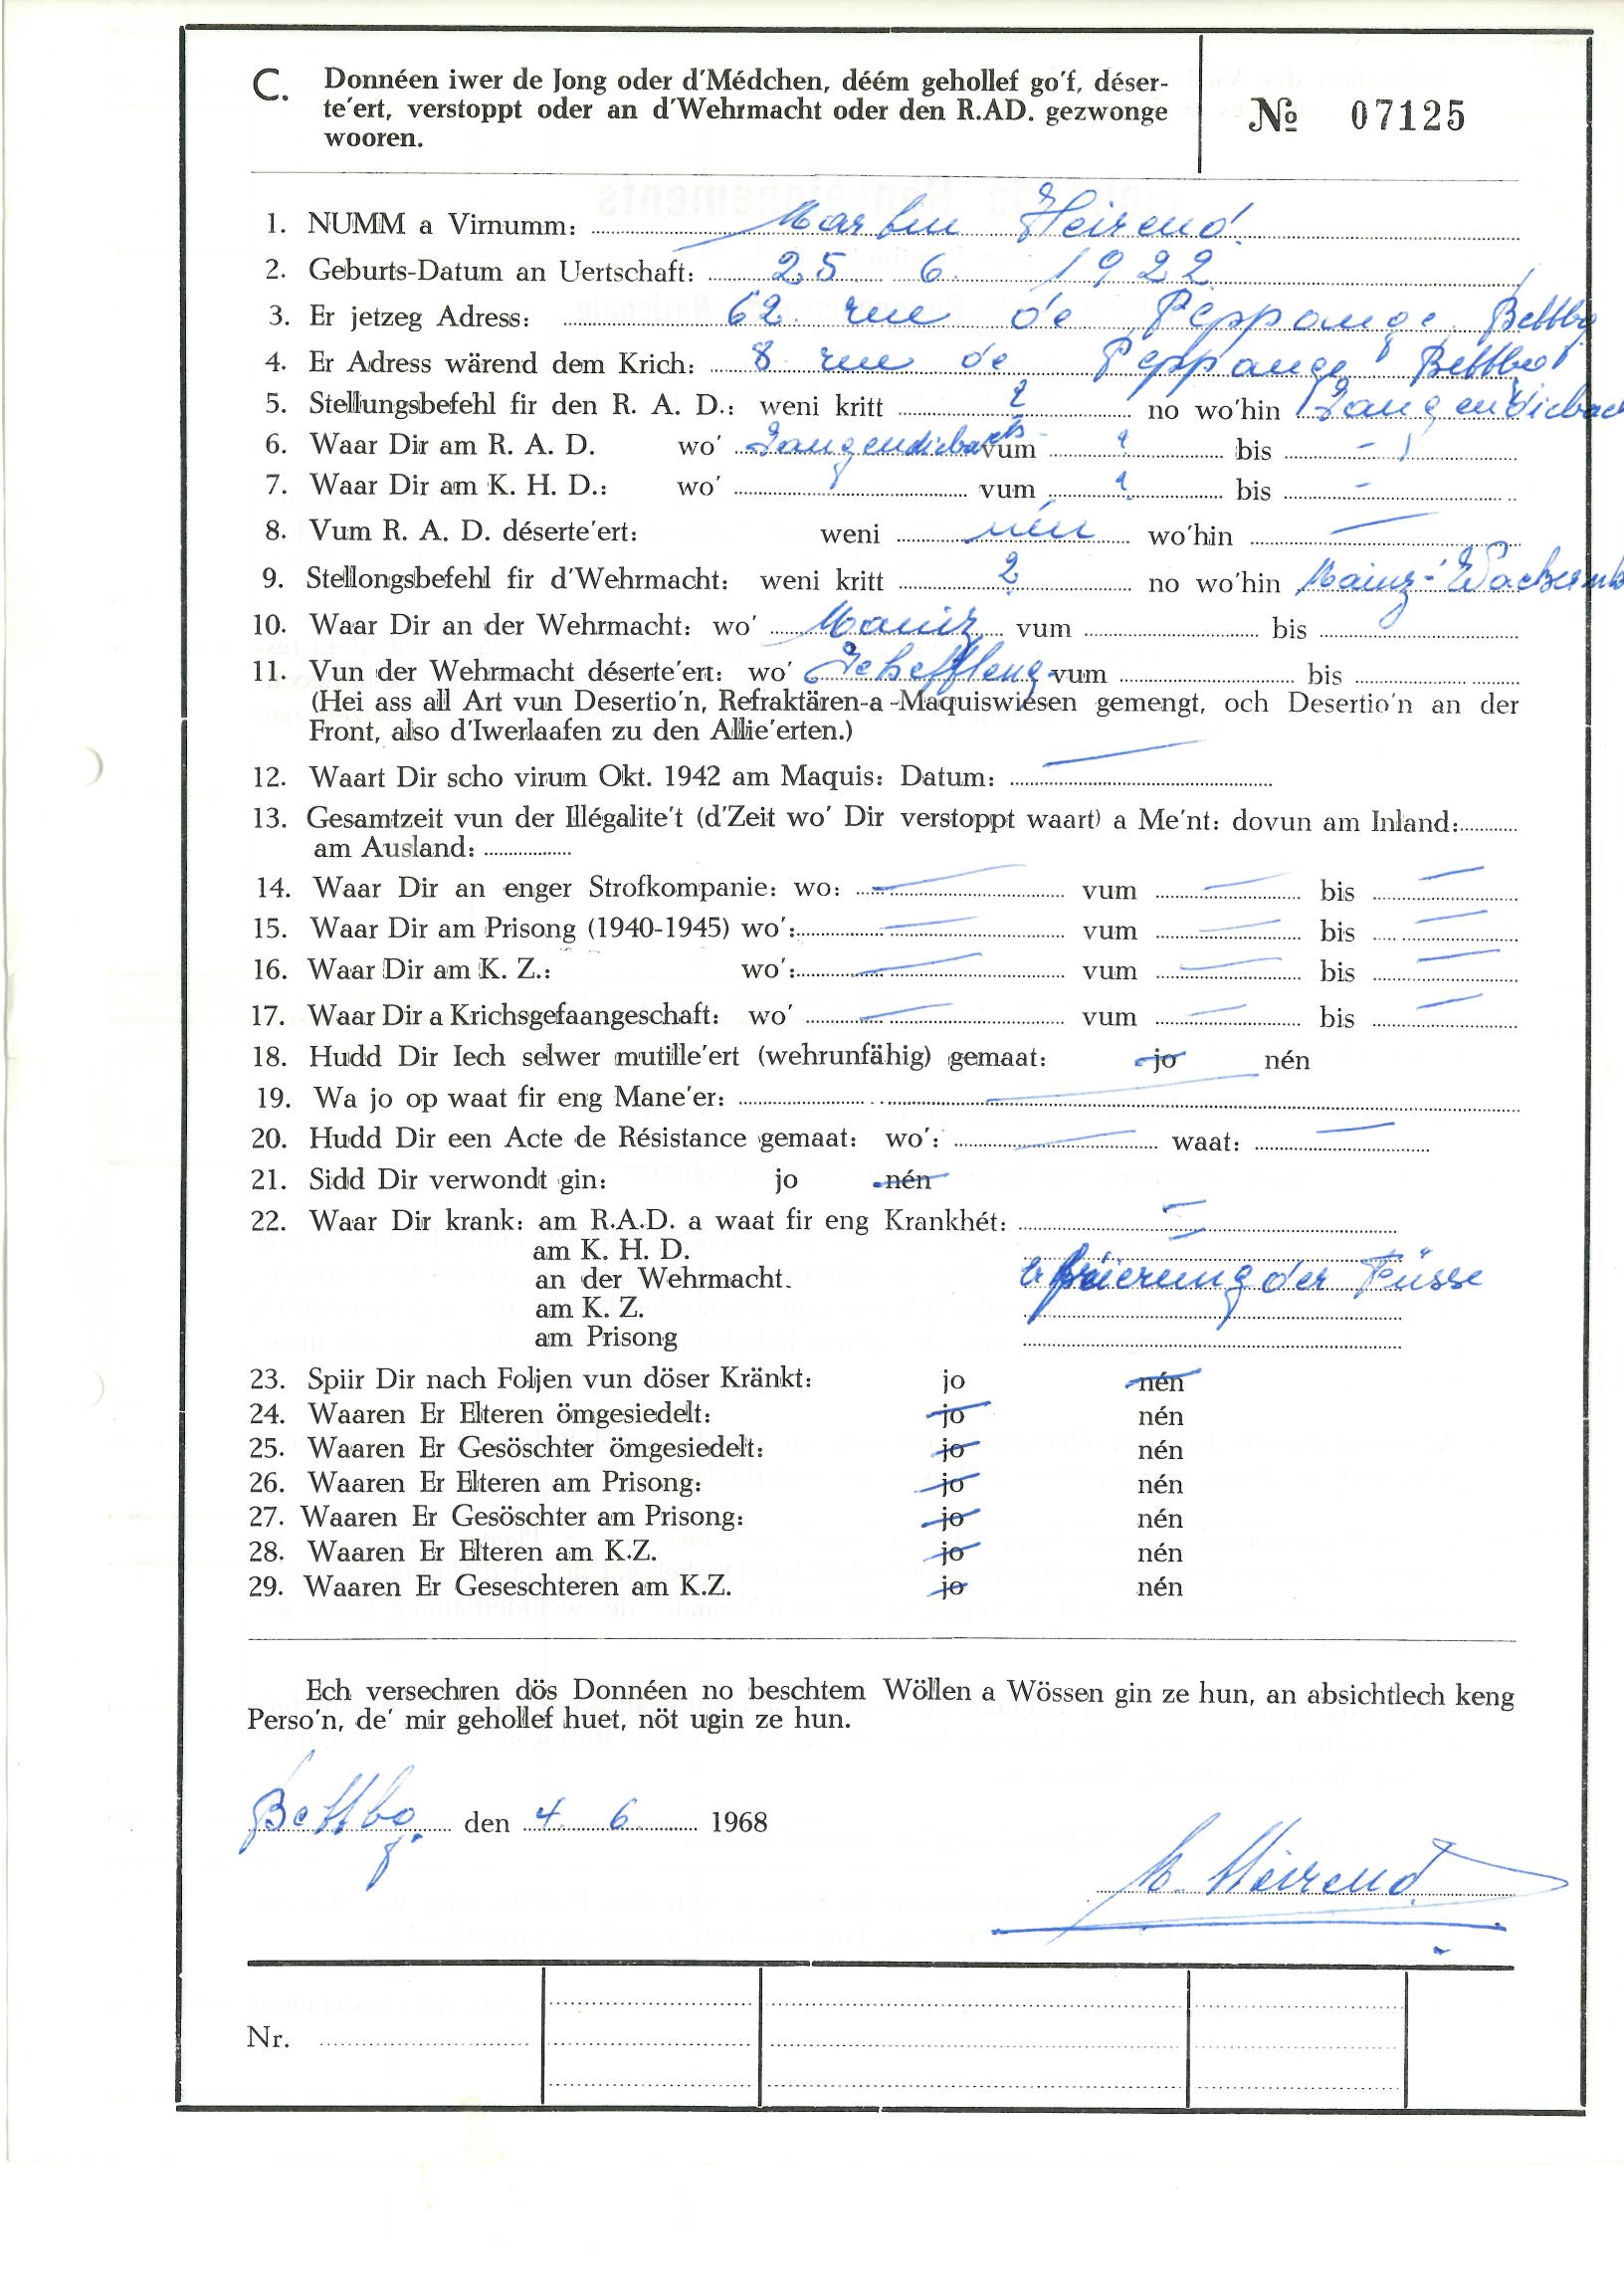 C. Donnéen iwer de Jong oder d'Médchen, déém gehollef go'f, déser-
te'ert, verstoppt oder an d'Wehrmacht oder den R.AD. gezwonge
wooren.
№ 07125
1. NUMM a Virnumm: Martin Heirend.
2. Geburts-Datum an Uertschaft: 25 6. 1922
3. Er jetzeg Adress: 62 rue de Peppange, Bettbg
4. Er Adress wärend dem Krich: 8 rue de Peppange Bettbg
5. Stellungsbefehl fir den R. A. D.: weni kritt ? no wo'hin Langendiebach
6. Waar Dir am R. A. D. wo' Langendiebach vum ? bis -
7. Waar Dir am K. H. D.: wo' vum ? bis -
8. Vum R. A. D. déserte'ert: weni nén wo'hin —
9. Stellongsbefehl fir d'Wehrmacht: weni kritt ? no wo'hin Mainz-
10. Waar Dir an der Wehrmacht: wo' Mainz vum bis
11. Vun der Wehrmacht déserte'ert: wo' Scheffleng vum bis
(Hei ass all Art vun Desertio'n, Refraktären-a-Maquiswiesen gemengt, och Desertio'n an der
Front, also d'Iwerlaafen zu den Allie'erten.)
12. Waart Dir scho virum Okt. 1942 am Maquis: Datum: —
13. Gesamtzeit vun der Illégalite't (d'Zeit wo' Dir verstoppt waart) a Me'nt: dovun am Inland:
am Ausland:
14. Waar Dir an enger Strofkompanie: wo: — vum — bis —
15. Waar Dir am Prisong (1940-1945) wo': — vum — bis —
16. Waar Dir am K. Z.: wo': — vum — bis —
17. Waar Dir a Krichsgefaangeschaft: wo' — vum — bis —
18. Hudd Dir Iech selwer mutille'ert (wehrunfähig) gemaat: jo nén
19. Wa jo op waat fir eng Mane'er: —
20. Hudd Dir een Acte de Résistance gemaat: wo': — waat: —
21. Sidd Dir verwondt gin: jo nén
22. Waar Dir krank: am R.A.D. a waat fir eng Krankhét: —
am K. H. D. —
an der Wehrmacht. Erfrierung der Füsse
am K. Z.
am Prisong
23. Spiir Dir nach Foljen vun döser Kränkt: jo nén
24. Waaren Er Elteren ömgesiedelt: jo nén
25. Waaren Er Gesöschter ömgesiedelt: jo nén
26. Waaren Er Elteren am Prisong: jo nén
27. Waaren Er Gesöschter am Prisong: jo nén
28. Waaren Er Elteren am K.Z. jo nén
29. Waaren Er Geseschteren am K.Z. jo nén
Ech versechren dös Donnéen no beschtem Wöllen a Wössen gin ze hun, an absichtlech keng
Perso'n, de' mir gehollef huet, nöt ugin ze hun.
Bettbg. den 4. 6. 1968
M. Heirend.
Nr.